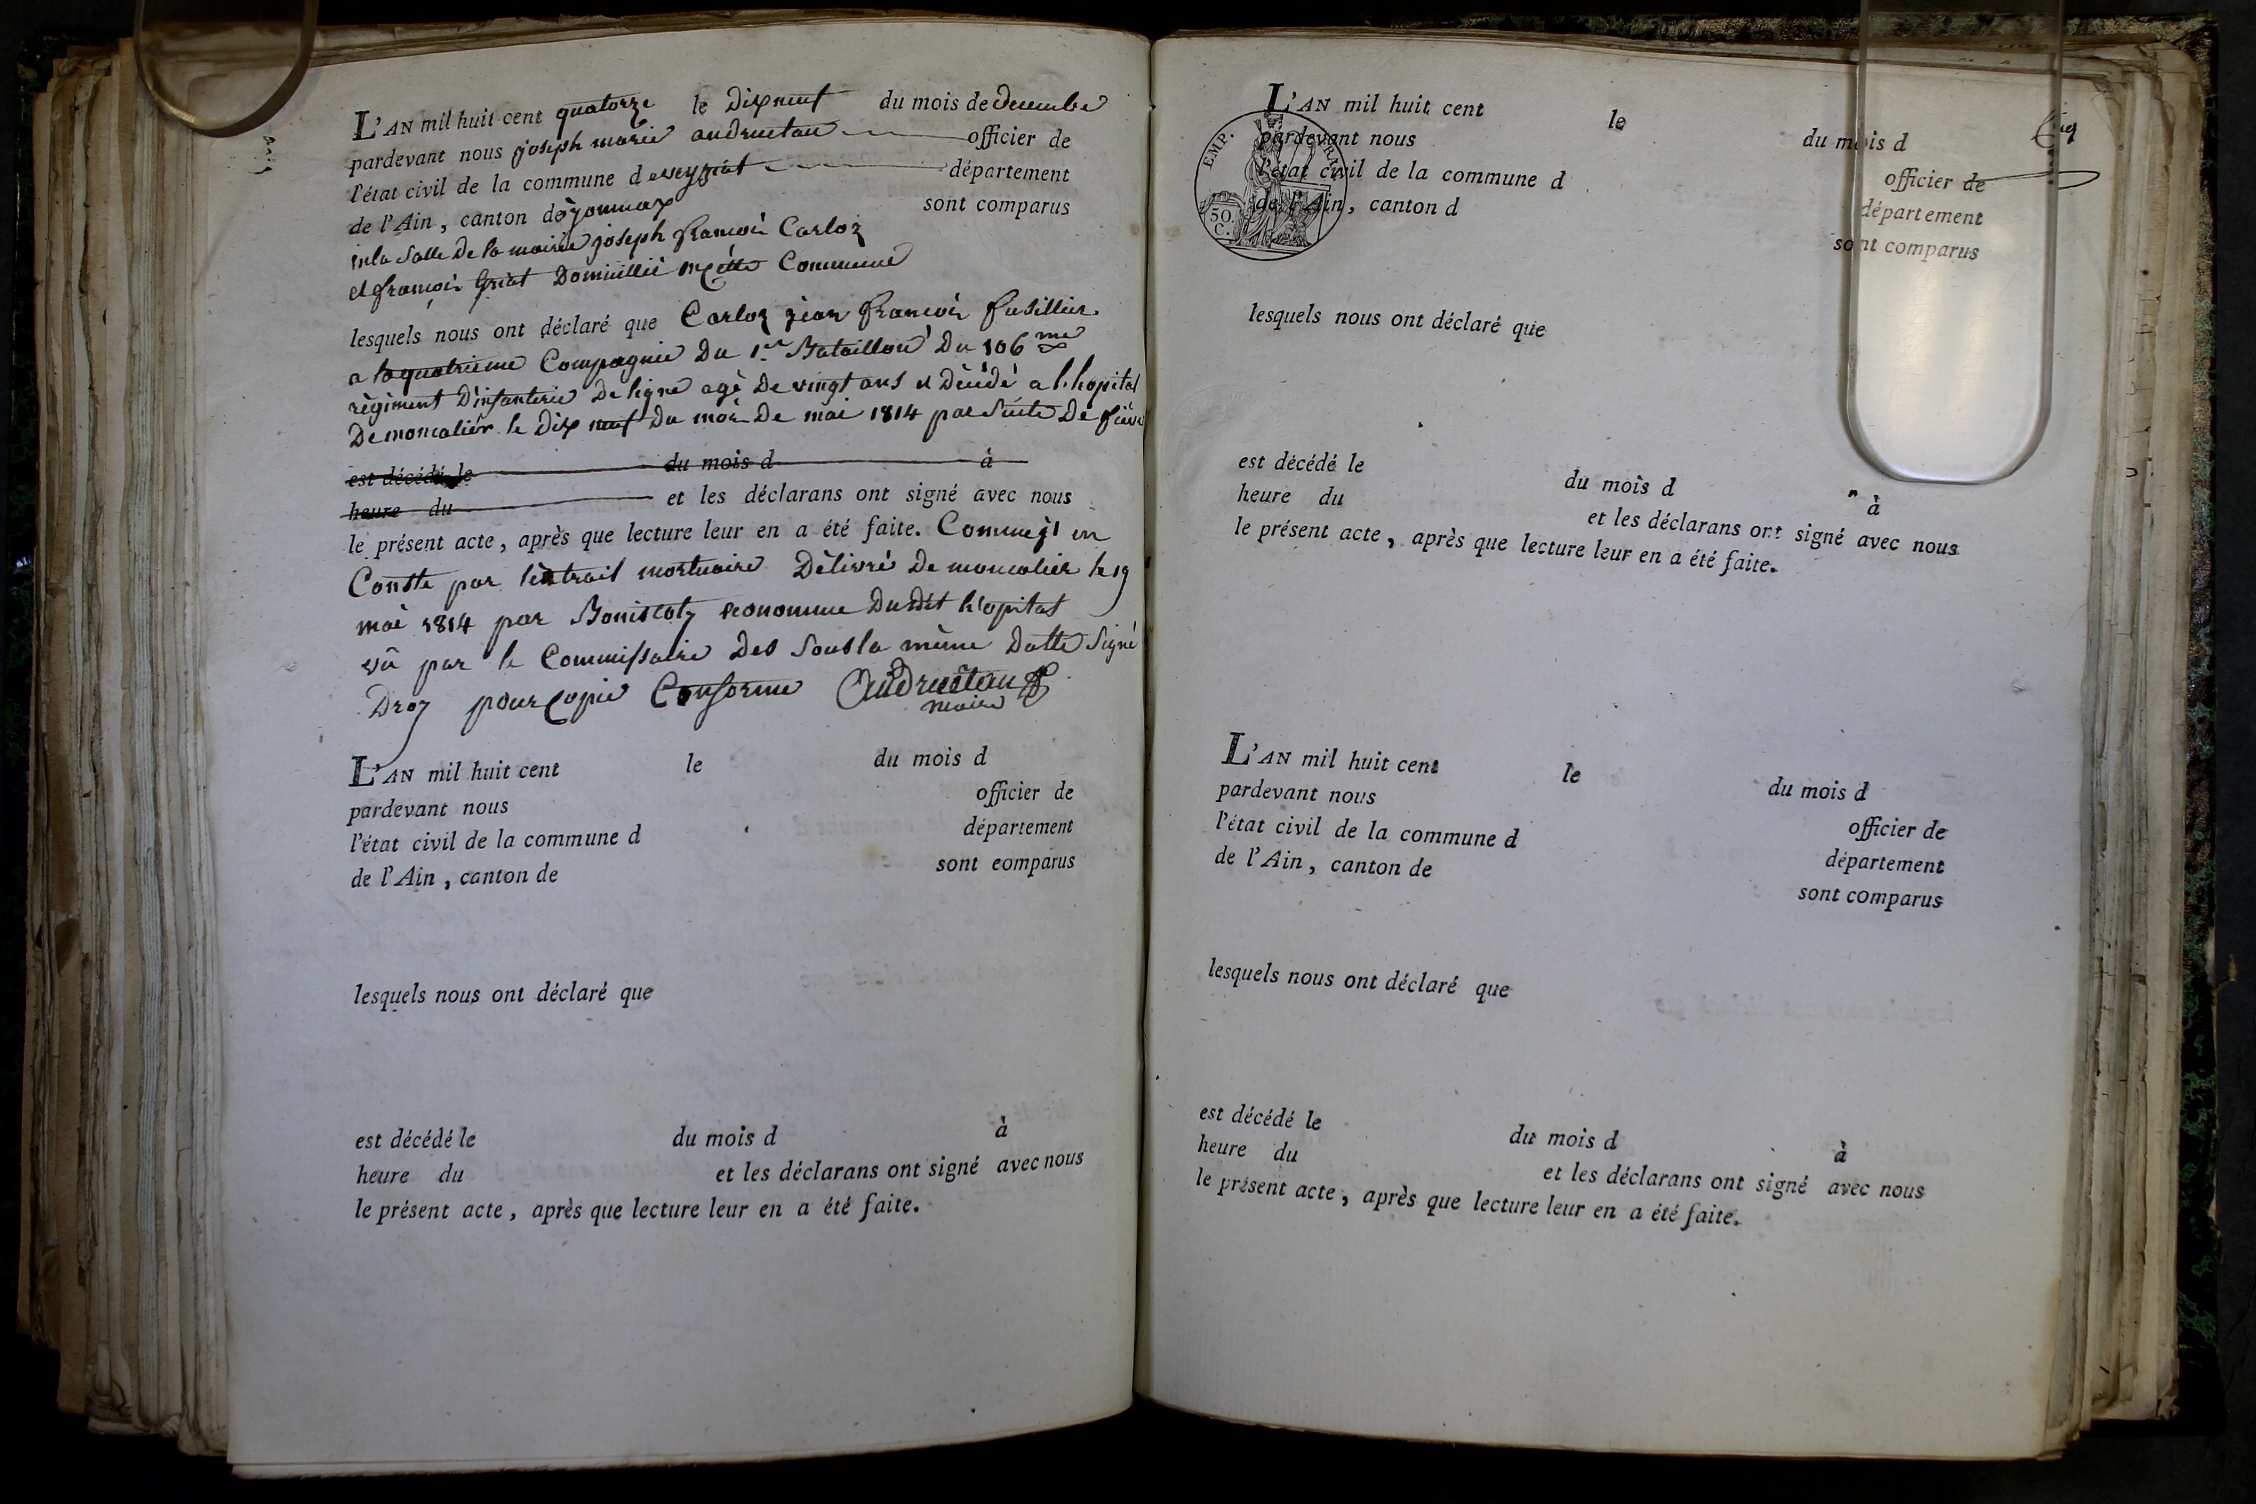 L'AN mil huit cent quatorze le dix neuf du mois de decembre
pardevant nous joseph marie andruetan officier de
l'état civil de la commune d e veyziat département
de l'Ain, canton d'oyonnax sont comparus
en la salle de la mairie joseph françois Carloz
et françois domicillié en cette Commune
lesquels nous ont déclaré que Carloz jean françois fusillier
a la quatrieme Compagnie du 1.er Bataillon du 106 me
régiment d'infanterie de ligne agé de vingt ans et décédé a l'hopital
de moncalier le dix neuf du moi de mai 1814 par suite de fièvre
est décédé le du mois d à
heure du et les déclarans ont signé avec nous
le présent acte, après que lecture leur en a été faite. Comme jl en
Conste par l'extrait mortuaire délivré de moncalier le 19
mai 1814 par econome dudit hopital
vû par le Commissaire des sous la même datte signé
Droz pour Copie Conforme Andruetan
maire
L'AN mil huit cent le du mois d
pardevant nous officier de
l'état civil de la commune d département
de l'Ain, canton de sont comparus
lesquels nous ont déclaré que
est décédé le du mois d à
heure du et les déclarans ont signé avec nous
le présent acte, après que lecture leur en a été faite.
L'AN mil huit cent le du mois d
pardevant nous officier de
l'état civil de la commune d département
de l'Ain, canton d sont comparus
EMP. FRAN.
50.
C.
lesquels nous ont déclaré que
est décédé le du mois d à
heure du et les déclarans ont signé avec nous
le présent acte, après que lecture leur en a été faite.
L'AN mil huit cent le du mois d
pardevant nous officier de
l'état civil de la commune d département
de l'Ain, canton de sont comparus
lesquels nous ont déclaré que
est décédé le du mois d à
heure du et les déclarans ont signé avec nous
le présent acte, après que lecture leur en a été faite.